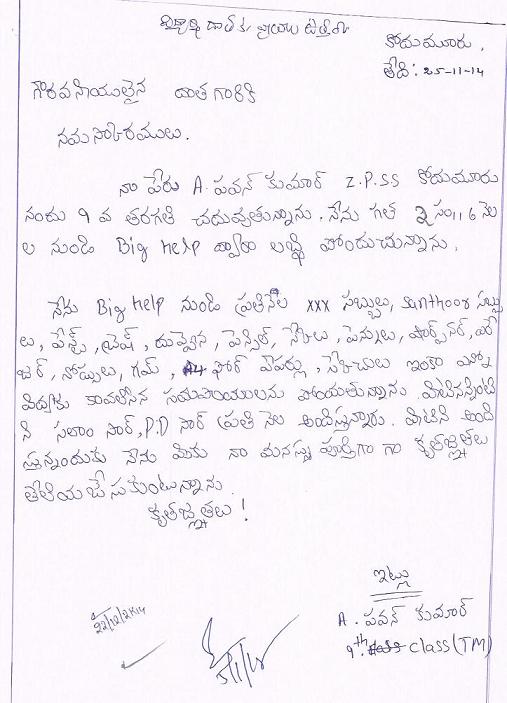 విద్యార్థి దాతకు వ్రాయు ఉత్తరం
కోడుమూరు,
తేది: 25-11-14
గౌరవనీయులైన దాత గారికి
నమస్కారములు.
నా పేరు A. పవన్ కుమార్ Z.P.SS కోడుమూరు
నందు 9 వ తరగతి చదువుతున్నాను. నేను గత 2 సం॥ 6 నె
ల నుండి Big help ద్వారా లబ్ధి పొందుచున్నాను.
నేను Big help నుండి ప్రతినెల xxx సబ్బులు, santhoor సబ్బు
లు, పేస్ట్, బ్రష్, దువ్వెన, పెన్సిల్, స్కేలు, పెన్నులు, షార్ప్‌నర్, ఎరే
జర్, నోట్సులు, గమ్, ఫోర్ పేపర్లు, స్కెచులు ఇంకా ఎన్నో
విద్యకు కావలసిన సదుపాయులను పోయతున్నాను. వీటినన్నింటి
ని సలాం సార్, P.D సార్ ప్రతి నెల అందిస్తున్నారు. వీటిని అంది
స్తున్నందుకు నేను మీకు నా మనస్సు పూర్తిగా గా కృతజ్ఞతలు
తెలియజేసుకుంటున్నాను.
కృతజ్ఞతలు !
ఇట్లు
A. పవన్ కుమార్
9th class (TM)
22/12/2K14